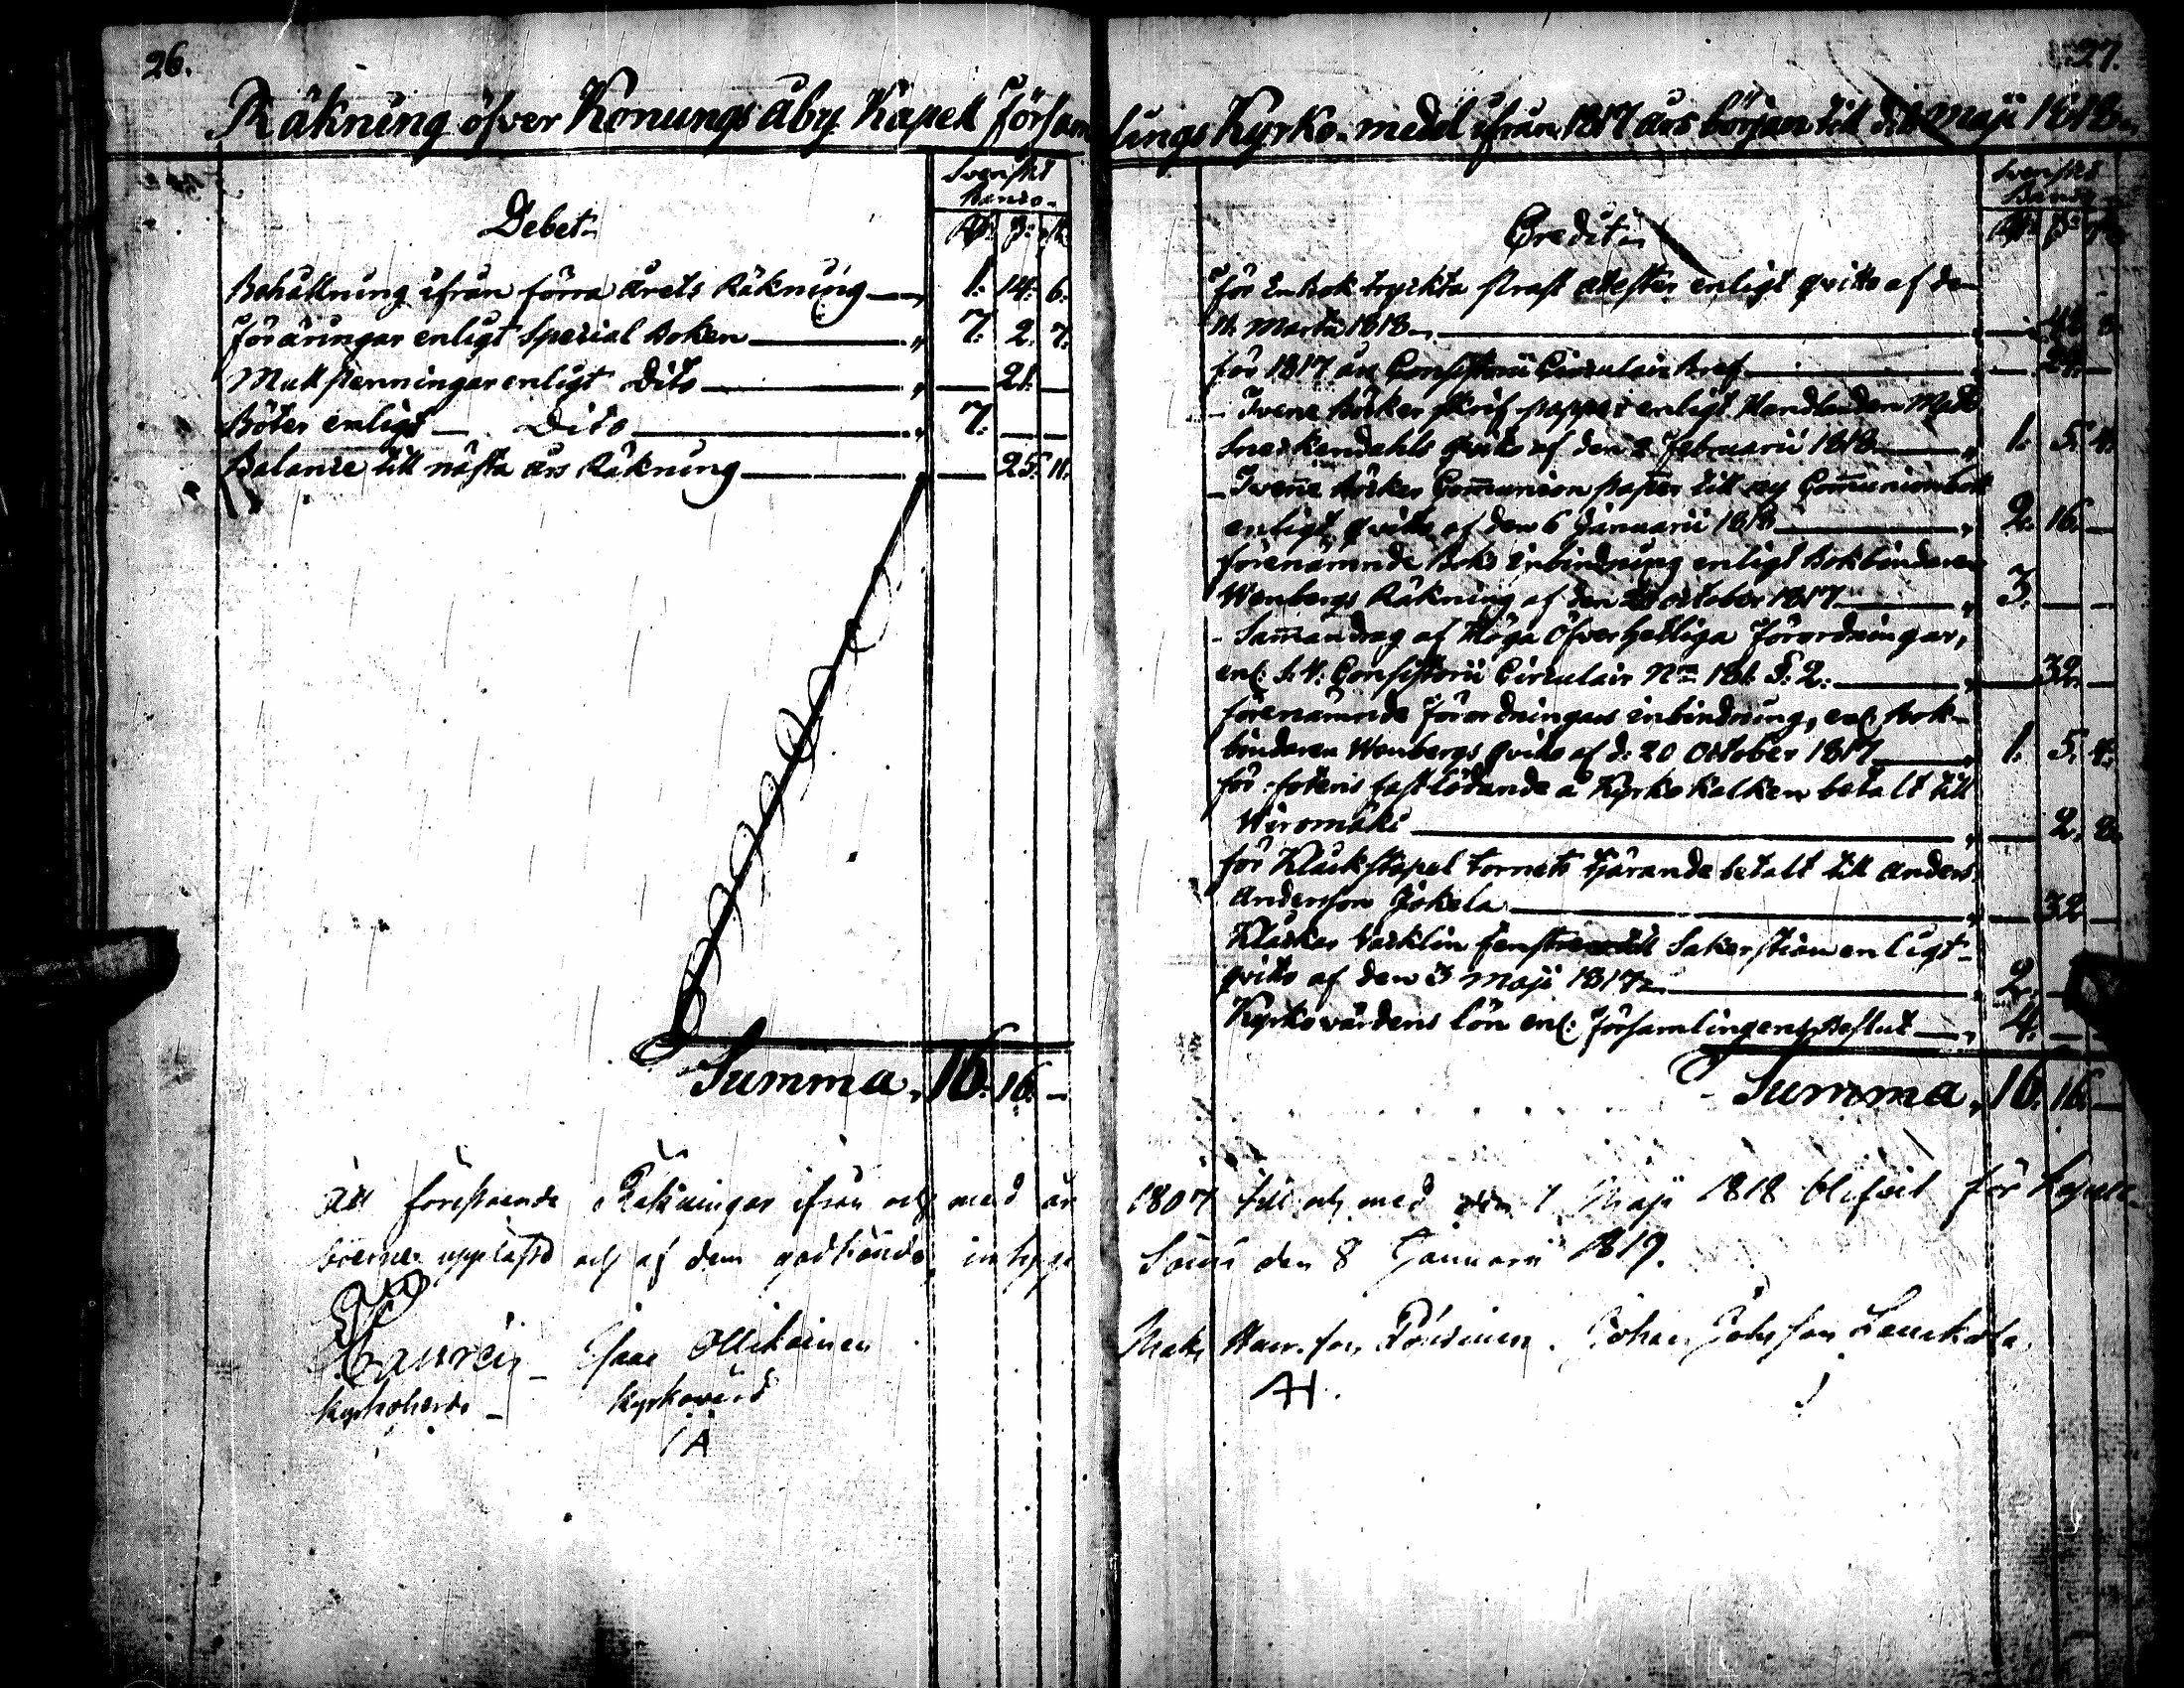 26.
Räkning öfver Konungs åby Kapell Försam
Svenskt
Banco.
Debet.
Rd. s. rst.
Behållning ifrån förra årets Räkning 1. 14. 6.
Föräringar enligt Special Boken 7. 2. 7.
Mull penningar enligt Dito 21.
Böter enligt Dito 7.
Balance till nästa års Räkning 25. 11.
Summa. 16. 16.
Att förestående Räkningar ifrån och med år
boerne uppläste och af dem godkände, intyga
Lauréin Isaac Ollikainen
Kyrkoherde Kyrkovärd
IA
27.
lings Kyrko-medel ifrån 1817 års början till d. 1 Maji 1818.
Svenskt
Banco
Credit.
Rd. s. rst.
För En bok tryckta straff attester enligt qvitto af den
11. Martii 1818. 42. 8.
för 1817 års Consistorii Circulair Bref 24.
Tvenne Böcker skrif papper enligt Handlanden
Sneckendahls qvitto af den 2 Februarii 1818 1. 5. 4.
Tvenne Böcker Communion papper till ny Communionbok
enligt qvitto af den 6 Januarii 1818 2. 16.
förenämnde Boks inbindning enligt Bokbinderen
Wenbergs Räkning af den 20 October 1817 3.
Sammandrag af Höga Öfverhetliga Förordningar,
enl: S. V. Consistorii Circulair No 181 §. 2. 32.
förenämnde Förordningars inbindning, enl. Bok-
binderen Wenbergs qvitto af d. 20 October 1817 1. 5. 4.
för fotens fastlödande å Kyrko kalken betalt till
Wiromäki 2. 8.
för Klåckstapel tornets tjärande betalt till Anders
Andersson Jokela 32
Klockar Vacklin fenstren till Sakerstian enligt
qvitto af den 3 Maji 1817. 2.
Kyrkovärdens lön enl: Församlingens Beslut 4.
Summa. 16. 16.
1807 till och med den 1 Maji 1818 blifvit för Capell
Såcius den 8 Januarii 1819.
Mats Johan Johansson
AH.